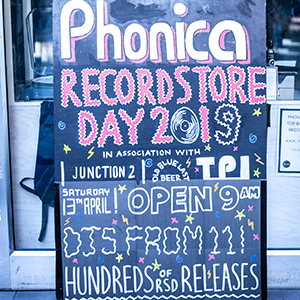 Phonica
RECORD STORE
DAY 2019
IN ASSOCIATION WITH
JUNCTION 2
BEER
SATURDAY
13TH APRIL
OPEN 9AM
DJS FROM 11
HUNDREDS OF RSD RELEASES